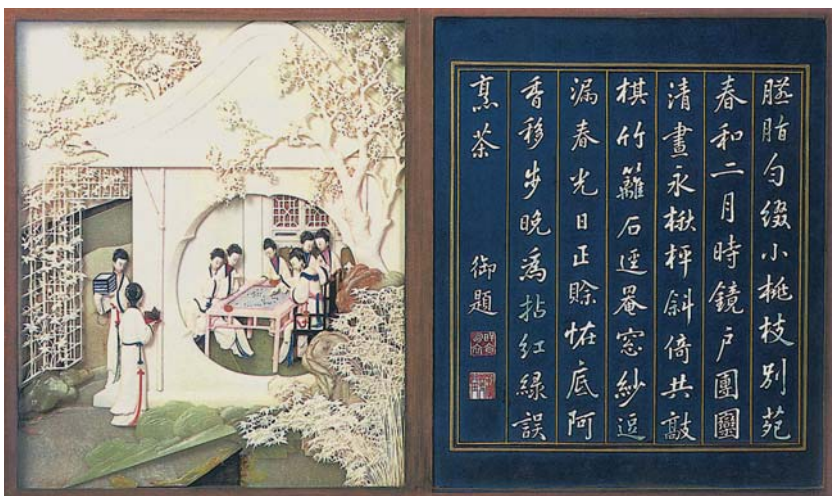 臙脂勻綴小桃枝別苑
春和二月時鏡戶團圞
清晝永楸枰斜倚共敲
棋竹籬石逕罨窓紗逗
漏春光日正賒恠底阿
香移步晚為拈紅綠誤
烹茶 御題